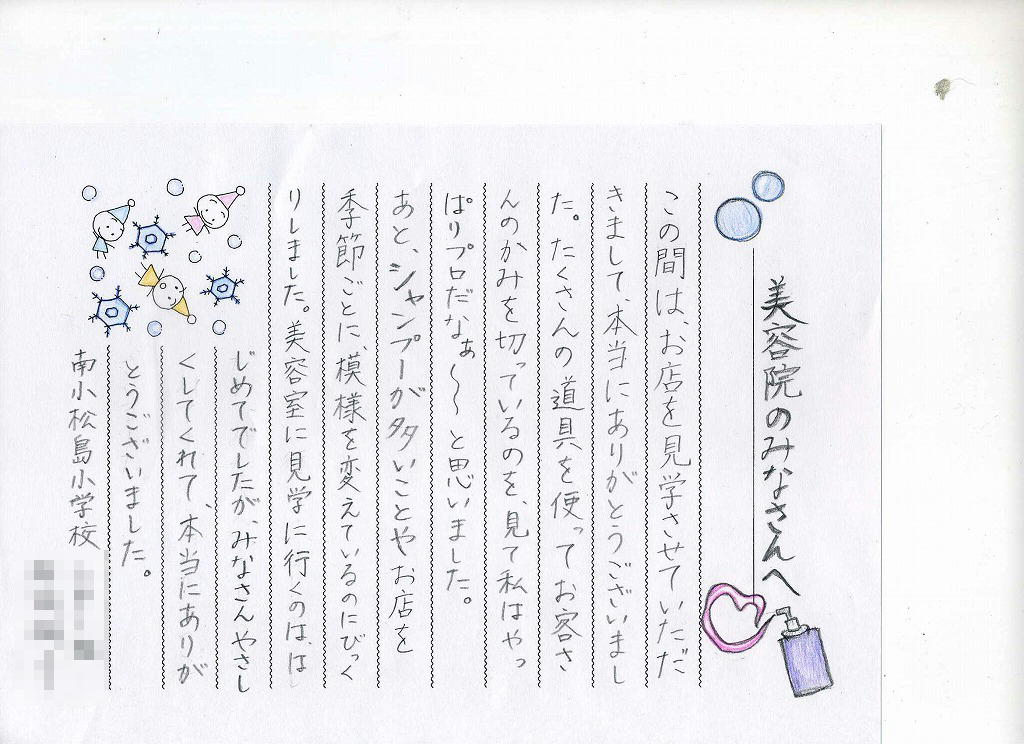 美容院のみなさんへ
この間は、お店を見学させていただ
きまして、本当にありがとうございまし
た。たくさんの道具を使ってお客さ
んのかみを切っているのを、見て私はやっ
ぱりプロだなぁ〜〜と思いました。
あと、シャンプーが多いことやお店を
季節ごとに、模様を変えているのにびっく
りしました。美容室に見学に行くのは、は
じめてでしたが、みなさんやさし
くしてくれて、本当にありが
とうございました。
南小松島小学校